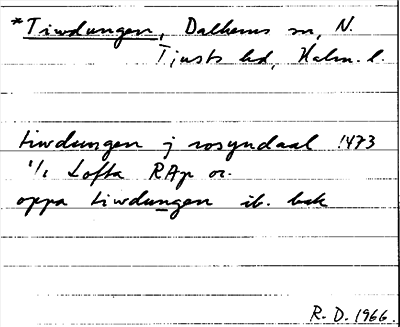 *Tiwdungen, Dalhems sn, N.
Tjusts hd, Kalm. l.
tiwdungen j rosyndaal 1473
1/1 Lofta RAp or.
oppa tiwdungen ib. bak
R. D. 1966.